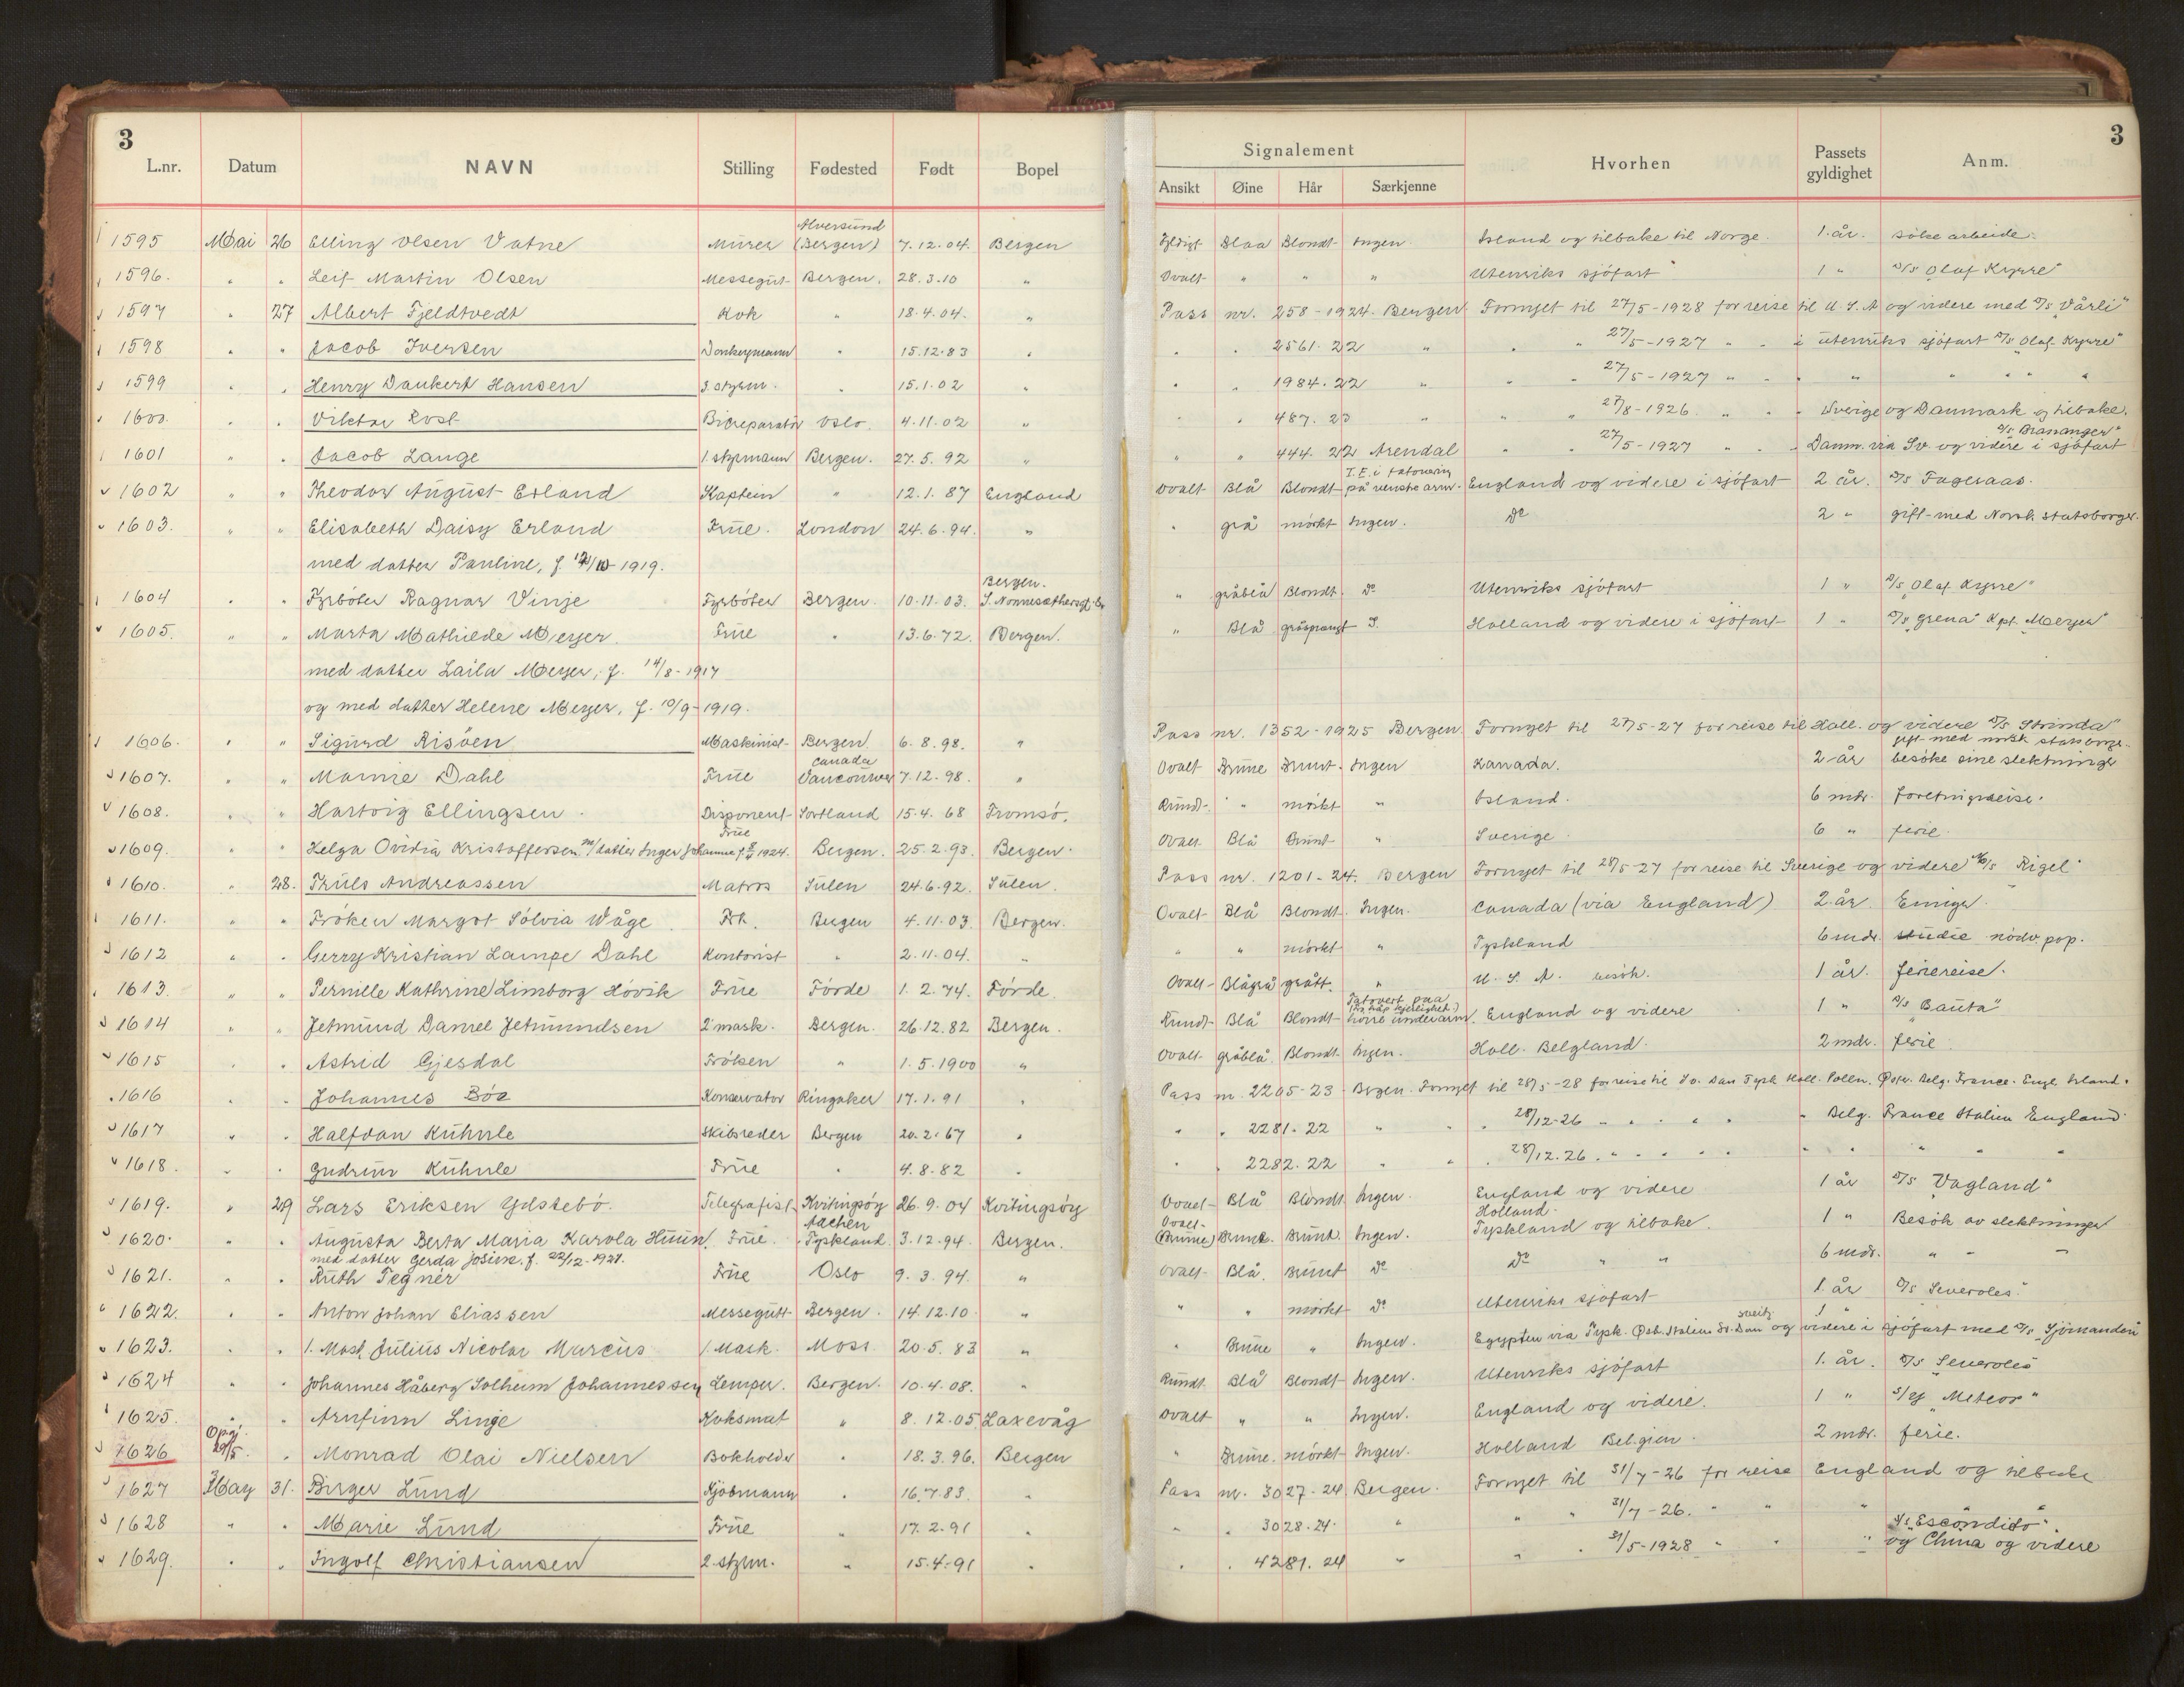 3
L.nr. Datum NAVN Stilling Fødested Født Bopel
Alversund
1595 Mai 26 Elling Olsen Vatne Murer (Bergen) 7.12.04. Bergen
1596. " " Leif Martin Olsen Messegut Bergen. 28.3.10 "
1597 " 27 Albert Fjeldtvedt Kok " 18.4.04. "
1598 " " Jacob Iversen Donkeymann " 15.12.83 "
1599 " " Henry Dankert Hansen 3. styrm. " 15.1.02 "
1600. " " Viktor Rost Bilreparatør Oslo. 4.11.02 "
1601 " " Jacob Lange 1. styrmann Bergen. 27.5.92 "
1602 " " Theodor August Erland Kaptein " 12.1.87 England
1603. " " Elisabeth Daisy Erland Frue. London 24.6.94. "
med datter Pauline, f. 1919.
Bergen.
1604 " " Fyrbøter Ragnar Vinje Fyrbøter Bergen. 10.11.03. S. Nonnesæthersgt.
1605. " " Marta Mathilde Meyer. Frue " 13.6.72. Bergen.
med datter Laila Meyer, f. 14/8-1917
og med datter Helene Meyer, f. 10/9-1919.
1606. " " Sigurd Risøen Maskinist Bergen. 6.8.98. "
Canada
1607. " " Mamie Dahl Frue Vancouver 7.12.98. "
1608. " " Hartvig Ellingsen. Disponent Sortland 15.4.68 Tromsø.
Frue
1609. " " Helga Ovidia Kristoffersen m/datter Inger Johanne f. 1924. Bergen. 25.2.93. Bergen.
1610. " 28. Truls Andreassen Matros Sulen 24.6.92. Sulen.
1611. " " Frøken Margot Solvia Wåge Frk. Bergen 4.11.03. Bergen.
1612 " " Gerry Kristian Lampe Dahl Kontorist " 2.11.04. "
1613. " " Pernille Kathrine Limborg Hovik Frue Førde 1.2.74. Førde.
1614 " " Jetmund Daniel Jetmundsen 2' mask. Bergen. 26.12.82 Bergen.
1615 " " Astrid Gjesdal Frøken " 1.5.1900 "
1616 " " Johannes Bøe Konservator Ringsaker 17.1.91 "
1617 " " Halfdan Kuhnle Skibsreder Bergen 20.2.67 "
1618. " " Gudrun Kuhnle Frue " 4.8.82 "
1619. " 29 Lars Eriksen Ydstebø. Telegrafist Kvitingsøy 26.9.04 Kvitingsøy
Aachen
1620. " " Augusta Berta Maria Karola Huun. Frue. Tyskland. 3.12.94. Bergen.
med datter Gerda Josine. f. 22/12-1921.
1621. " " Ruth Tegnér Frue Oslo 9.3.94. "
1622. " " Anton Johan Eliassen Messegutt Bergen. 14.12.10. "
1623. " " 1. Mask. Julius Nicolai Marcus 1. Mask. Moss 20.5.83 "
1624 " " Johannes Håberg Solheim Johannessen Lemper. Bergen. 10.4.08. "
1625. " " Arnfinn Linge Koksmat " 8.12.05 Laxevåg
1626 29/5. " Monrad Olai Nielsen Bokholder " 18.3.96. Bergen
1627 May 31. Birger Lund Kjøbmann " 16.7.83. "
1628 " " Marie Lund Frue " 17.2.91 "
1629. " " Ingolf Christiansen 2. styrm. " 15.4.91 "
3
Signalement Hvorhen Passets gyldighet Anm.
Ansikt Øine Hår Særkjenne
Blaa Blondt Ingen Island og tilbake til Norge. 1. år. søke arbeide.
Ovalt " " " Utenriks sjøfart 1 " D/S "Olaf Kyrre"
Pass nr. 258-1924. Bergen. Fornyet til 27/5-1928 for reise til U.S.A og videre med D/S "Vårli"
" " 2561. 22 " " " 27/5-1927 " " i utenriks sjøfart D/S "Olaf Kyrre"
" " 1984. 22 " " " 27/5-1927 " " " " " " "
" " 487. 23 " " " 27/8-1926. " " " Sverige og Danmark og tilbake.
D/S "Brananger"
" " 444. 22 Arendal " " 27/5-1927 " " Danm. via Sv. og videre i sjøfart
T.E. i tatovering
Ovalt Blå Blondt på venstre arm. England og videre i sjøfart 2 år. D/S Fagersaas.
" grå mørkt Ingen. do 2 " gift med Norsk statsborger.
" gråblå Blondt. do Utenriks sjøfart 1 " D/S "Olaf Kyrre"
" Blå gråsprengt I. Holland og videre i sjøfart 1 " D/S "Grena" Kpt. Meyer
Pass nr. 1352-1925 Bergen. Fornyet til 27/5-27 for reise til Holl. og videre D/S "Strinda"
gift med norsk statsborger.
Ovalt Brune Brunt. Ingen Kanada. 2 år besøke sine slektninger
Rundt " mørkt " Island. 6 mdr. foretningsreise.
Ovalt Blå Brunt " Sverige. 6 " ferie.
Pass nr. 1201-24. Bergen Fornyet til 28/5-27 for reise til Sverige og videre M/S "Rigel"
Ovalt Blå Blondt. Ingen. Canada (via England) 2 år Emigr.
" " mørkt " Tyskland 6 mdr. studie nødv. pap.
Ovalt Blågrå grått. " U.S.A. besøk. 1 år. feriereise.
Tatovert paa
Rundt Blå Blondt høire underarm. England og videre 1 " D/S "Bauta"
Ovalt gråblå Blondt. Ingen. Holl. Belgland. 2 mdr. ferie
Pass nr. 2205-23 Bergen. Fornyet til 28/5-28 for reise til Sv. Dan Tysk Holl. Polen. Belg. France. Engl. Irland.
" " 2281. 22 " " " 28/12-26 " " " " Belg. France Italien England
" " 2282. 22 " " " 28/12.26. " " " " " " " "
Ovalt Blå Blondt Ingen. England og videre 1 år D/S "Vagland"
Ovalt Holland.
(Brune) Brune. Brunt. Ingen. Tyskland og tilbake. 1 " Besøk av slektninger
Ovalt Blå. Brunt do do " " 6 mdr. " " "
" " mørkt do Utenriks sjøfart 1 år D/S Severoles.
sveitz
" Brune " Ingen. Egypten via Tysk. Østr. Italien Sv. Dan og videre i sjøfart med D/S "Sjømanden"
Rundt. Blå Blondt Ingen. Utenriks sjøfart 1. år. D/S Severoles
Ovalt " " Ingen. England og videre. 1 " "Meteor"
" Brune. mørkt Ingen. Holland Belgien. 2 mdr. ferie.
Pass nr. 3027-24. Bergen. Fornyet til 31/7-26 for reise England og tilbake
" " 3028.24. " " " 31/7-26. " " "
D/S "Escondido"
" " 4281. 24 " " " 31/5-1928 " " " og China og videre